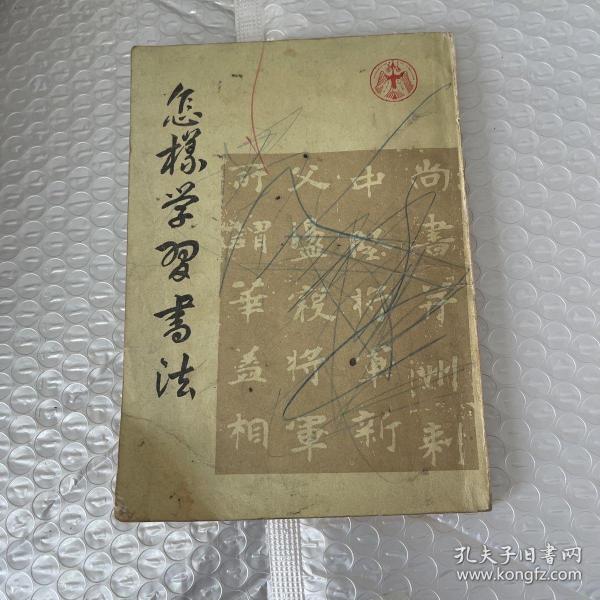 怎樣学習書法
尚書爭州刺
中堅將軍新
父盪寇將軍
所謂華蓋相
孔夫子旧書网
www.kongfz.com